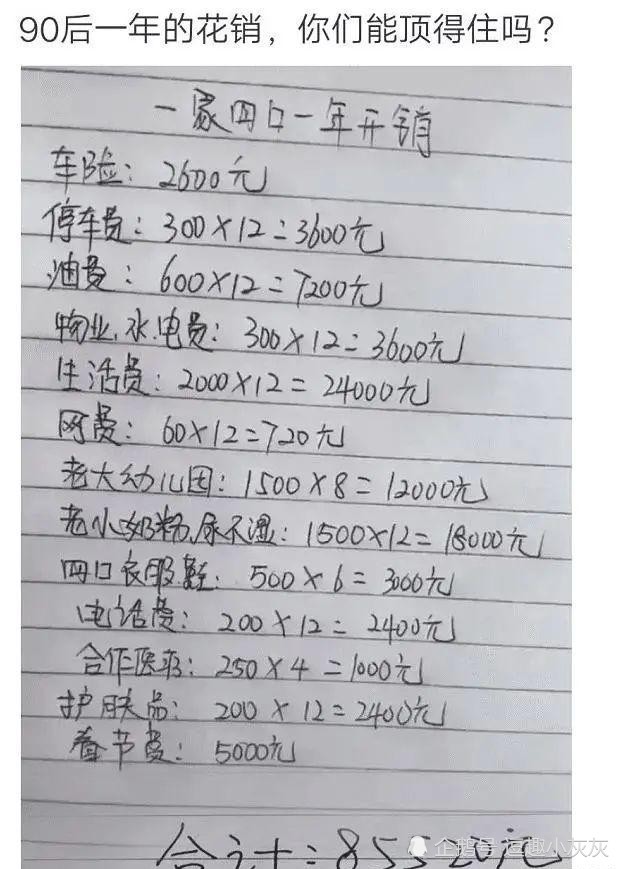 90后一年的花销，你们能顶得住吗？
一家四口一年开销
车险：2600元
停车费：300×12=3600元
油费：600×12=7200元
物业.水.电费：300×12=3600元
生活费：2000×12=24000元
网费：60×12=720元
老大幼儿园：1500×8=12000元
老小奶粉.尿不湿：1500×12=18000元
四口衣服鞋：500×6=3000元
电话费：200×12=2400元
合作医疗：250×4=1000元
护肤品：200×12=2400元
春节费：5000元
合计：85520元
企鹅号 逗趣小灰灰